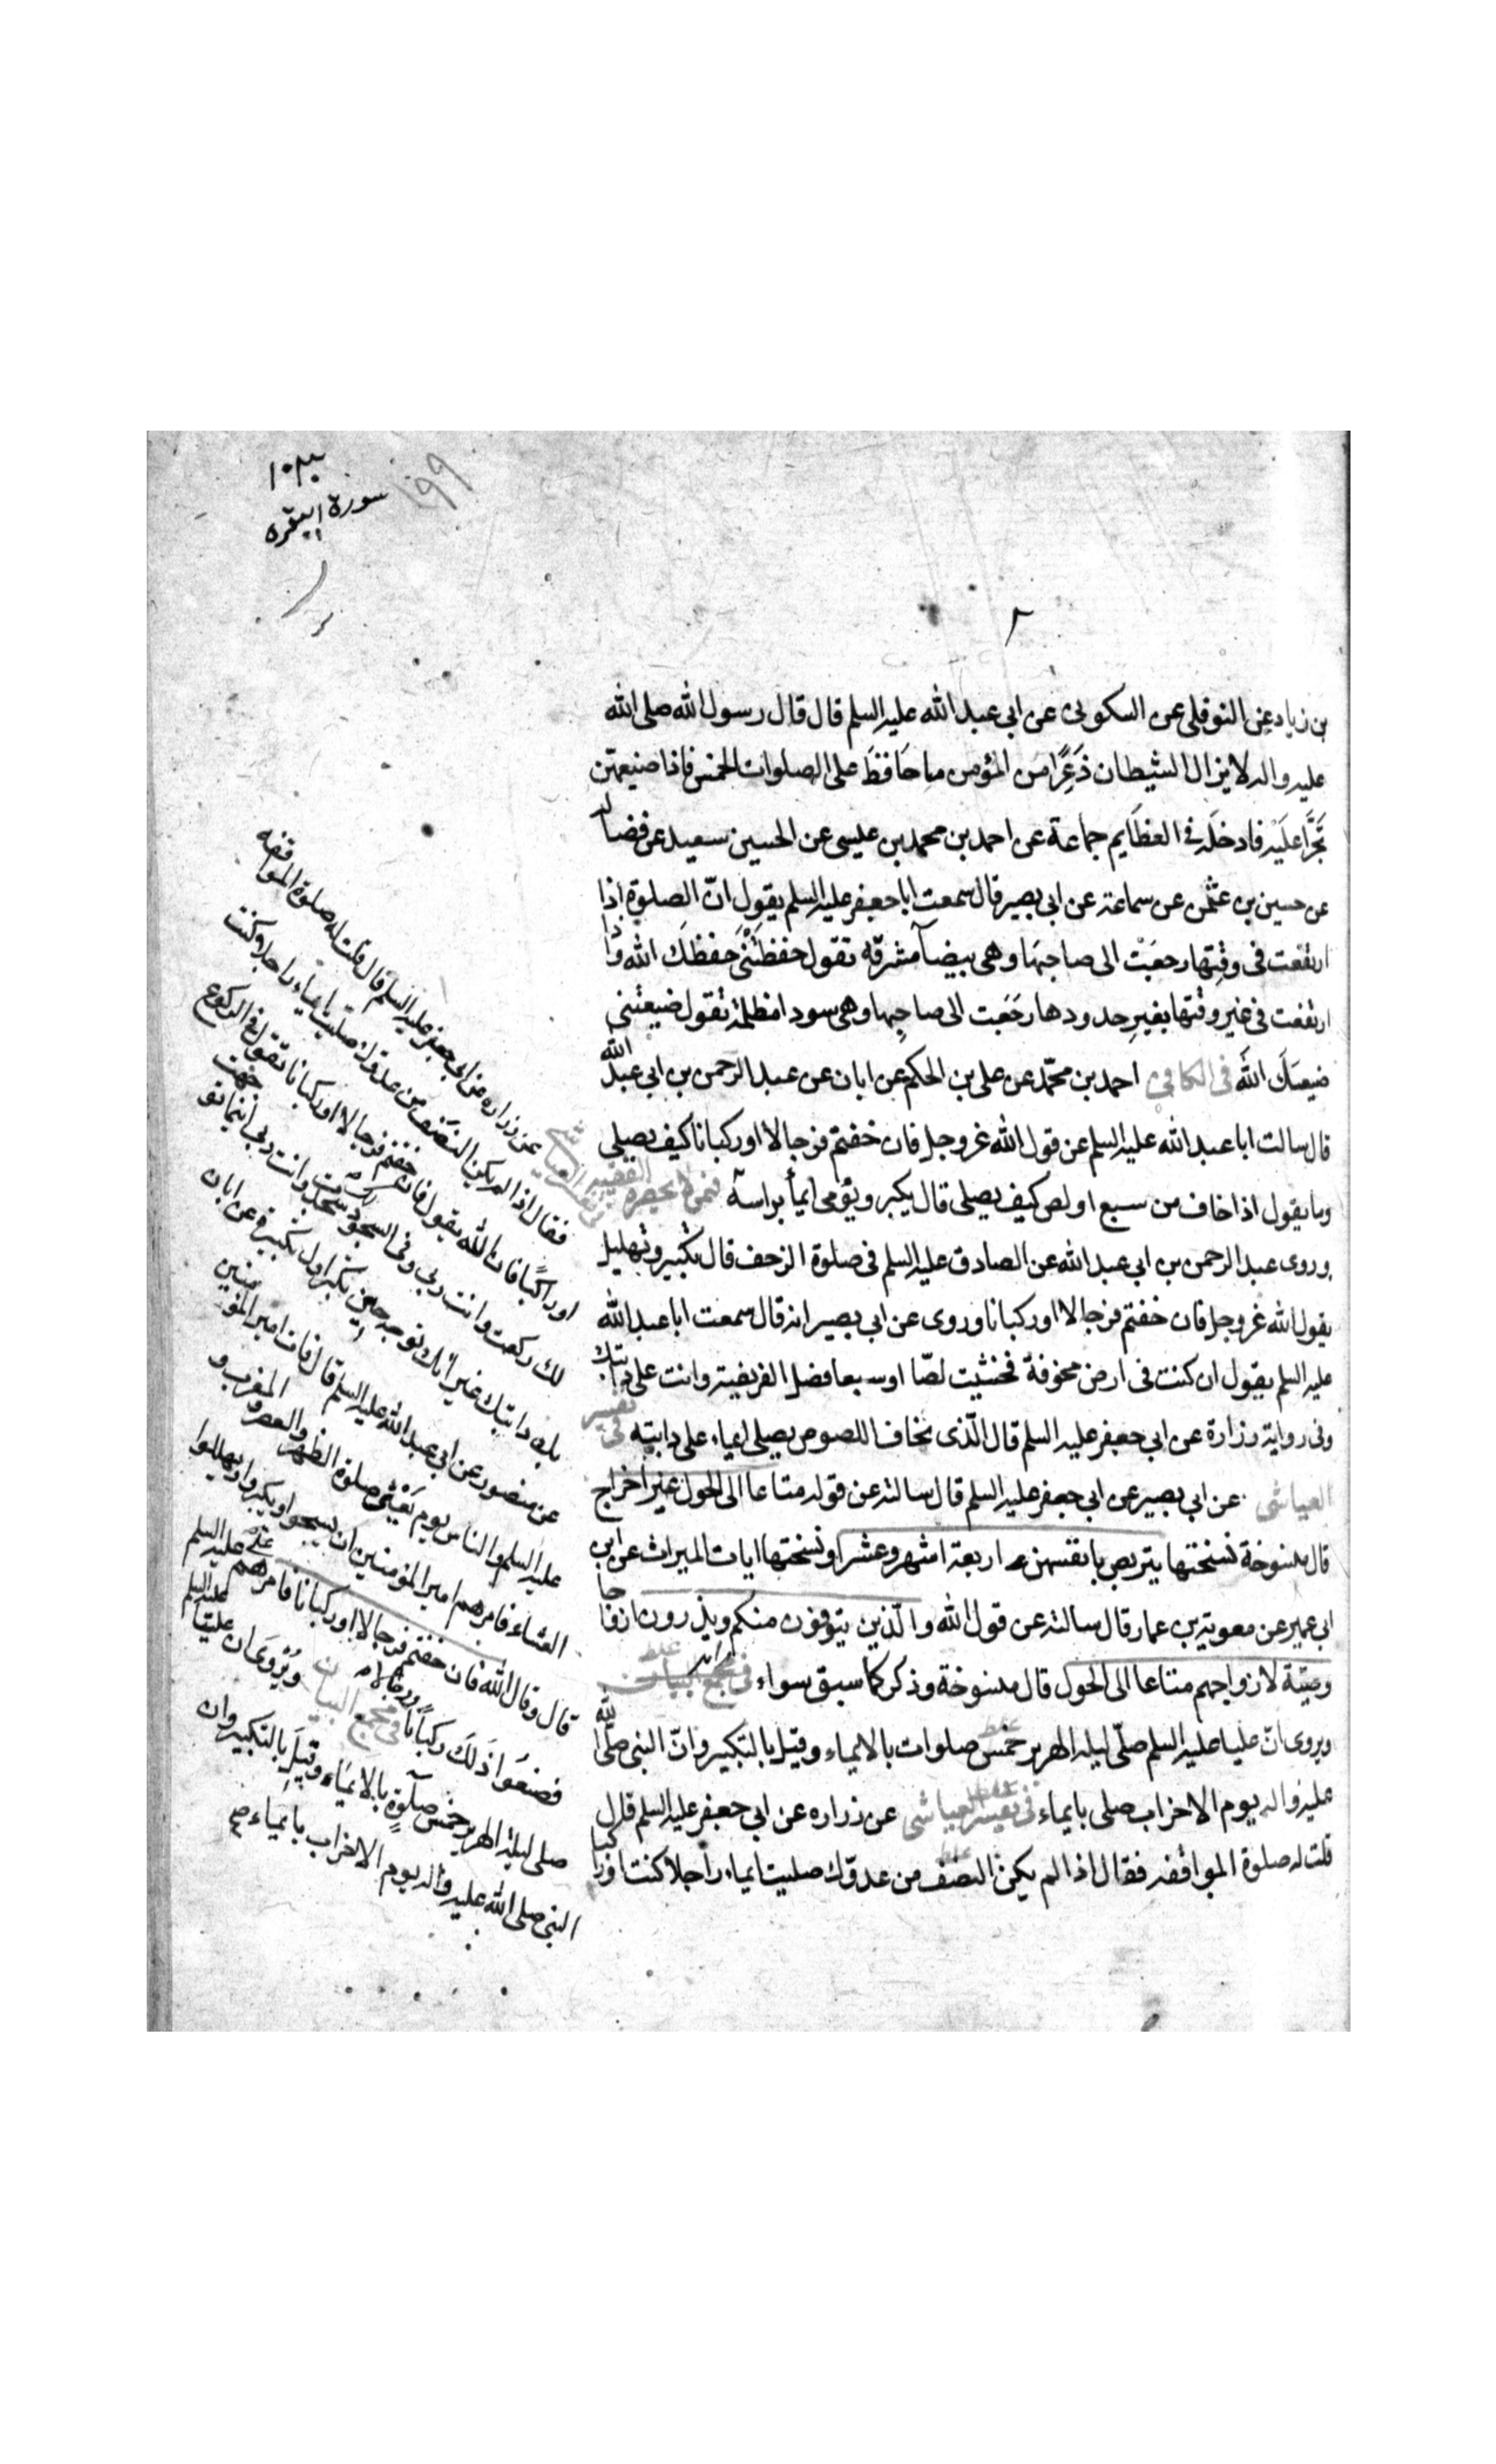 سورة البقرة
١٩٩
٢
بن زياد عن النوفلى عن السكونى عن ابى عبد الله عليه السلم قال قال رسول الله صلى الله
عليه واله لا يزال الشيطان ذعرًا من المؤمن ما حافظ على الصلوات الخمس فاذا ضيعهن
تجرّأ عليه فادخله فى العظايم جماعة عن احمد بن محمد بن عليسى عن الحسين سعيد عن فضاله
عن حسين بن عثمن عن سماعة عن ابى بصير قال سمعت ابا جعفر عليه السلم يقول انّ الصلوة اذا
ارتفعت فى وقتها رجعت الى صاحبها وهى بيضآ مشرقه تقول حفظتنى حفظك الله واذا
ارتفعت فى غير وقتها بغير حدودها رجعت الى صاحبها وهى سودا مظلمة تقول ضيعتنى
ضيعك الله فى الكافى احمد بن محمّد عن على بن الحكم عن ابان عن عبد الرحمن بن ابى عبد الله
قال سالت ابا عبد الله عليه السلم عن قول الله عزوجل فان خفتم فرجالا او ركبانا كيف يصلى
وما يقول اذا خاف من سبع او لص كيف يصلى قال يكبر ويؤمى ايمأ براسه فيمن لا يحضره الفقيه
وروى عبد الرحمن بن ابى عبد الله عن الصادق عليه السلم فى صلوة الزحف قال تكبير وتهليل
يقول الله عزوجل فان خفتم فرجالا او ركبانا وروى عن ابى بصير انه قال سمعت ابا عبد الله
عليه السلم يقول ان كنت فى ارض مخوفة فخشيت لصّا او سبعا فصل الفريضة وانت على دابتك
وفى رواية زرارة عن ابى جعفر عليه السلم قال الّذى يخاف اللصوص يصلى ايماء على دابته فى تفسير
العياشى عن ابى بصير عن ابى جعفر عليه السلم قال سالته عن قوله متاعا الى الحول غير اخراج
قال منسوخة نسختها يتربصن بانفسهن اربعة اشهر وعشرا ونسختها ايات الميراث عن ابن
ابى عمير عن معوية بن عمار قال سالته عن قول الله والّذين يتوفون منكم ويذرون ازواجا
وصيّة لازواجهم متاعا الى الحول قال منسوخة وذكر كما سبق سواء فى مجمع البيان
ويروى انّ عليا عليه السلم صلّى ليلة الهرير خمس صلوات بالايماء وقيل بالتكبير وانّ النبى صلّى الله
عليه واله يوم الاحزاب صلى بايماء فى تفسير العياشى عن زراره عن ابى جعفر عليه السلم قال
قلت له صلوة المواقفه فقال اذا لم يكن النصف من عدوّك صليت ايماء راجلا كنت او راكبا
عن زراره عن ابى جعفر عليه السلم قال قلت له صلوة المواقفه
فقال اذا لم يكن النصف من عدوك صليت ايماء راجلا كنت
او راكبًا فان الله يقول فان خفتم فرجالا او ركبانا تقول فى الركوع
لك ركعت وانت ربى وفى السجود لك سجدت وانت ربى اينما توجهت
بك دابتك غير انك توجه حين تكبر اول تكبيرة عن ابان
عن منصور عن ابى عبد الله عليه السلم قال فات امير المؤمنين
عليه السلم والناس يوم صلوة الظهر والعصر والمغرب و
العشاء فامرهم امير المؤمنين ان يسبحوا ويكبروا ويهللوا
قال وقال الله فان خفتم فرجالا او ركبانا فامرهم على عليه السلم
فصنعوا ذلك ركبانًا ورجالا فى مجمع البيان ويُروى ان عليًا عليه السلم
صلى ليلة الهرير خمس صلوة بالايماء وقيل بالتكبير وان
النبى صلى الله عليه واله يوم الاحزاب بايماء صح